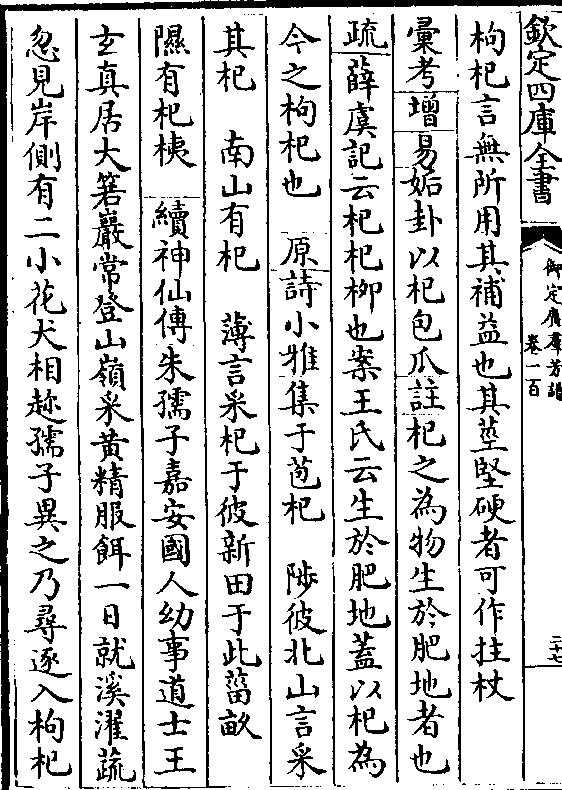 欽定四庫全書
御定廣羣芳譜
卷一百
二十七
枸杞言無所用其補益也其莖堅硬者可作拄杖
彙考增易姤卦以杞包瓜註杞之為物生於肥地者也
疏薛虞記云杞杞栁也案王氏云生於肥地蓋以杞為
今之枸杞也　原詩小雅集于苞杞　陟彼北山言采
其杞　南山有杞　薄言采杞于彼新田于此菑畝
隰有杞桋　續神仙傳朱孺子嘉安國人幼事道士王
玄真居大箬巖常登山嶺采黃精服餌一日就溪濯蔬
忽見岸側有二小花犬相趂孺子異之乃尋逐入枸杞